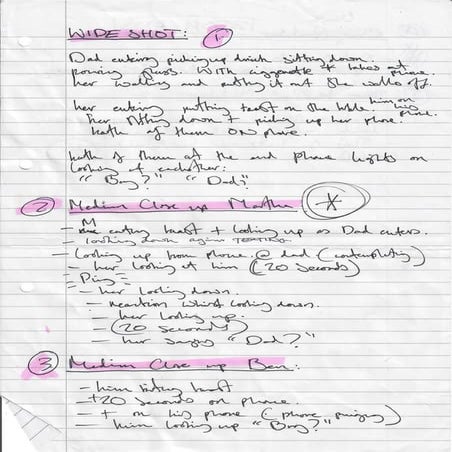 WIDE SHOT: 1
Dad entering picking up drink sitting down.
pouring glass. WITH cigarette + looks at phone.
her walking and putting it out She walks off.
her entering putting toast on the table. him on his phone.
her sitting down + picking up her phone.
both of them ON phone.
both of them at the end phone lights on
looking at eachother:
"Boy?" "Dad?"
2 Medium Close up Martha *
- M eating toast + looking up as Dad enters.
- looking down again TEXTING
- Looking up from phone @ dad (contemplating)
- her looking at him (20 seconds)
Ping
- her looking down.
- reaction whilst looking down.
- her looking up.
(20 seconds)
- her saying "Dad?"
3 Medium Close up Ben:
- him eating toast
- +20 seconds on phone.
- + on his phone (phone pinging)
- him looking up "Boy?"